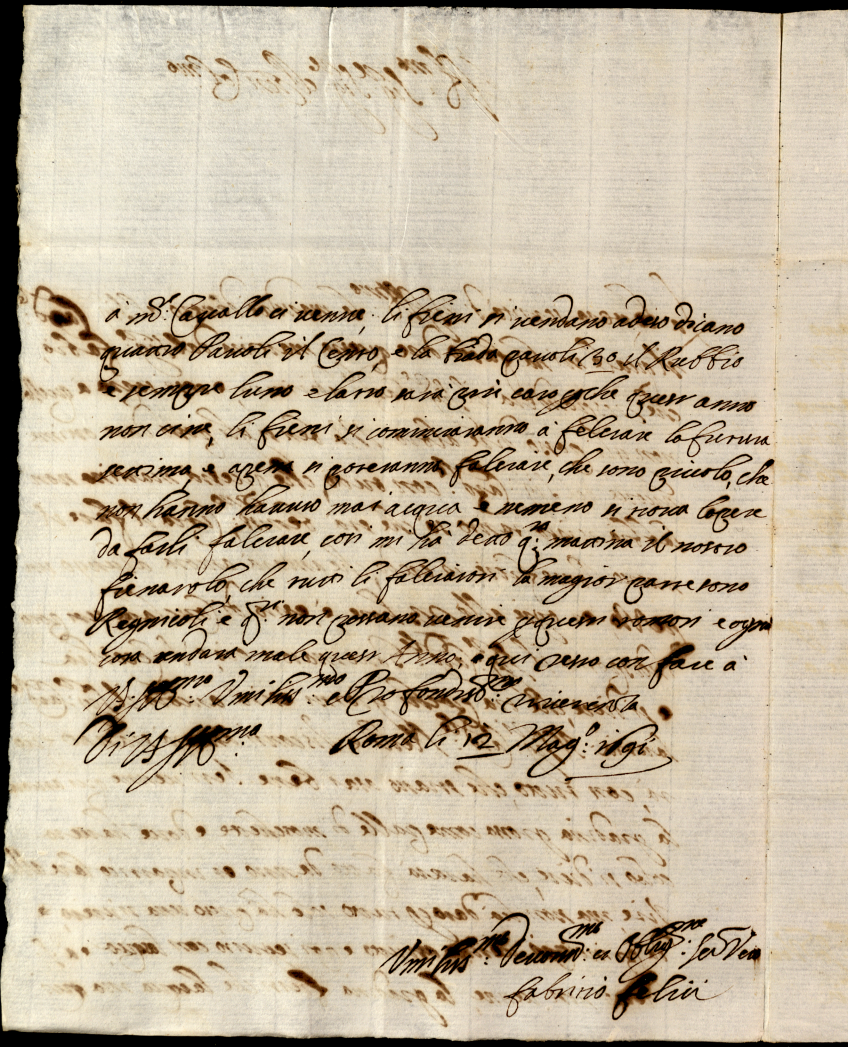 a m.e Cavallo ci venne, li fieni si vendano adeso dicano
quatro Pavoli il Cento, e la biada pavoli 30 il Rubbio
e sempre luno e latro sara piu caro pche quest anno
non cine, li fieni si cominciaranno à felciare la futura
setima, e apena si poteranno falciare, che sono picoli, che
non hanno hauto mai acqua e nemeno si trova lopere
da farli falciare, cosi mi ha deto q.ta matina il nostro
fienarolo, che tutti li falciatori la magior parte sono
Regnicoli e q.ti non possano venire p questi romori e ogni
cosa andara male quest Anno, e qui resto con fare à
V.S. Ill.ma Umilis.ma e Profondis.ma riverenza
Di V.S. Ill.ma Roma li 12 Mag.o 1691
Umilis.mo Devotis.mo et Oblig.mo Ser Vero
Fabritio Felici